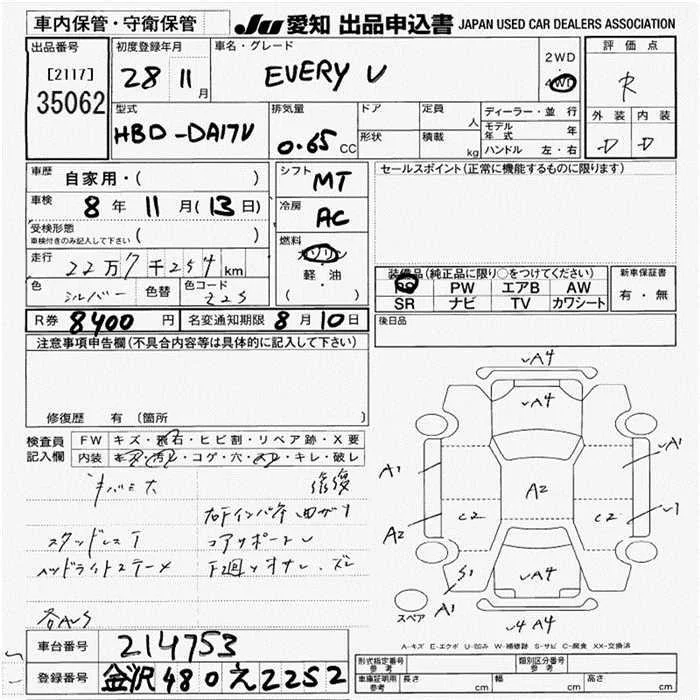 車内保管・守衛保管
JU 愛知 出品申込書 JAPAN USED CAR DEALERS ASSOCIATION
出品番号
[2117]
35062
初度登録年月
28 11 月
車名・グレード
EVERY U
2WD
4WD
評価点
R
外装 内装
D D
型式
HBD-DA17V
排気量
0.65 CC
ドア
形状
定員 人
積載 kg
ディーラー・並行
モデル年式 年
ハンドル 左・右
車歴 自家用・( )
車検 8年 11月(13日)
受検形態
車検付きのみ記入して下さい ( )
走行 22万7千254km
色 シルバー 色替 色コード 22S
シフト MT
冷房 AC
燃料
ガソリン
軽・油
( )
セールスポイント(正常に機能するものに限ります)
装備品(純正品に限り○をつけてください)
PS PW エアB AW
SR ナビ TV カワシート
新車保証書
有・無
R券 8400円 名変通知期限 8月10日
後日品
注意事項申告欄(不具合内容等は具体的に記入して下さい)
修復歴 有 〔箇所 〕
検査員記入欄
FW キズ・飛石・ヒビ割・リペア跡・X要
内装 キズ・汚れ・コゲ・穴・スレ・キレ・破レ
キバミ大 修復
右Fインパネ 曲がり
スタッドレスT コアサポートU
ヘッドライトステーメ
各AUS
U A4
U A4
A1
A2
A2
C2
C2
A1
U1
S1
U A4
A1
U4 A4
スペア
A-キズ E-エクボ U-凹み W-補修跡 S-サビ C-腐食 XX-交換済
車台番号 214753
登録番号 金沢480え2252
形式指定番号 参考
類別区分番号 参考
車庫証明用 参考 長さ cm 幅 cm 高さ cm